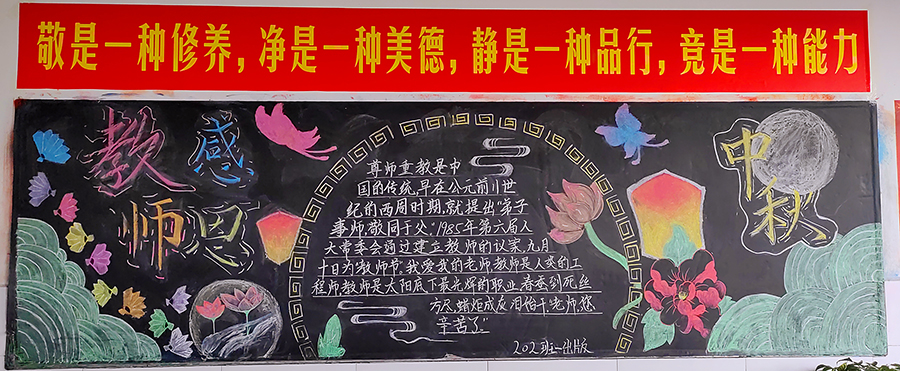 敬是一种修养,净是一种美德,静是一种品行,竞是一种能力
感
教
师恩
中秋
尊师重教是中
国的传统,早在公元前11世
纪的西周时期,就提出"弟子
事师,敬同于父;1985年第六届人
大常委会通过建立教师的议案,九月
十日为教师节,我爱我的老师,教师是人类的工
程师,教师是太阳底下最光辉的职业,春蚕到死丝
方尽,蜡炬成灰泪始干,老师,您
辛苦了"
202班—出版